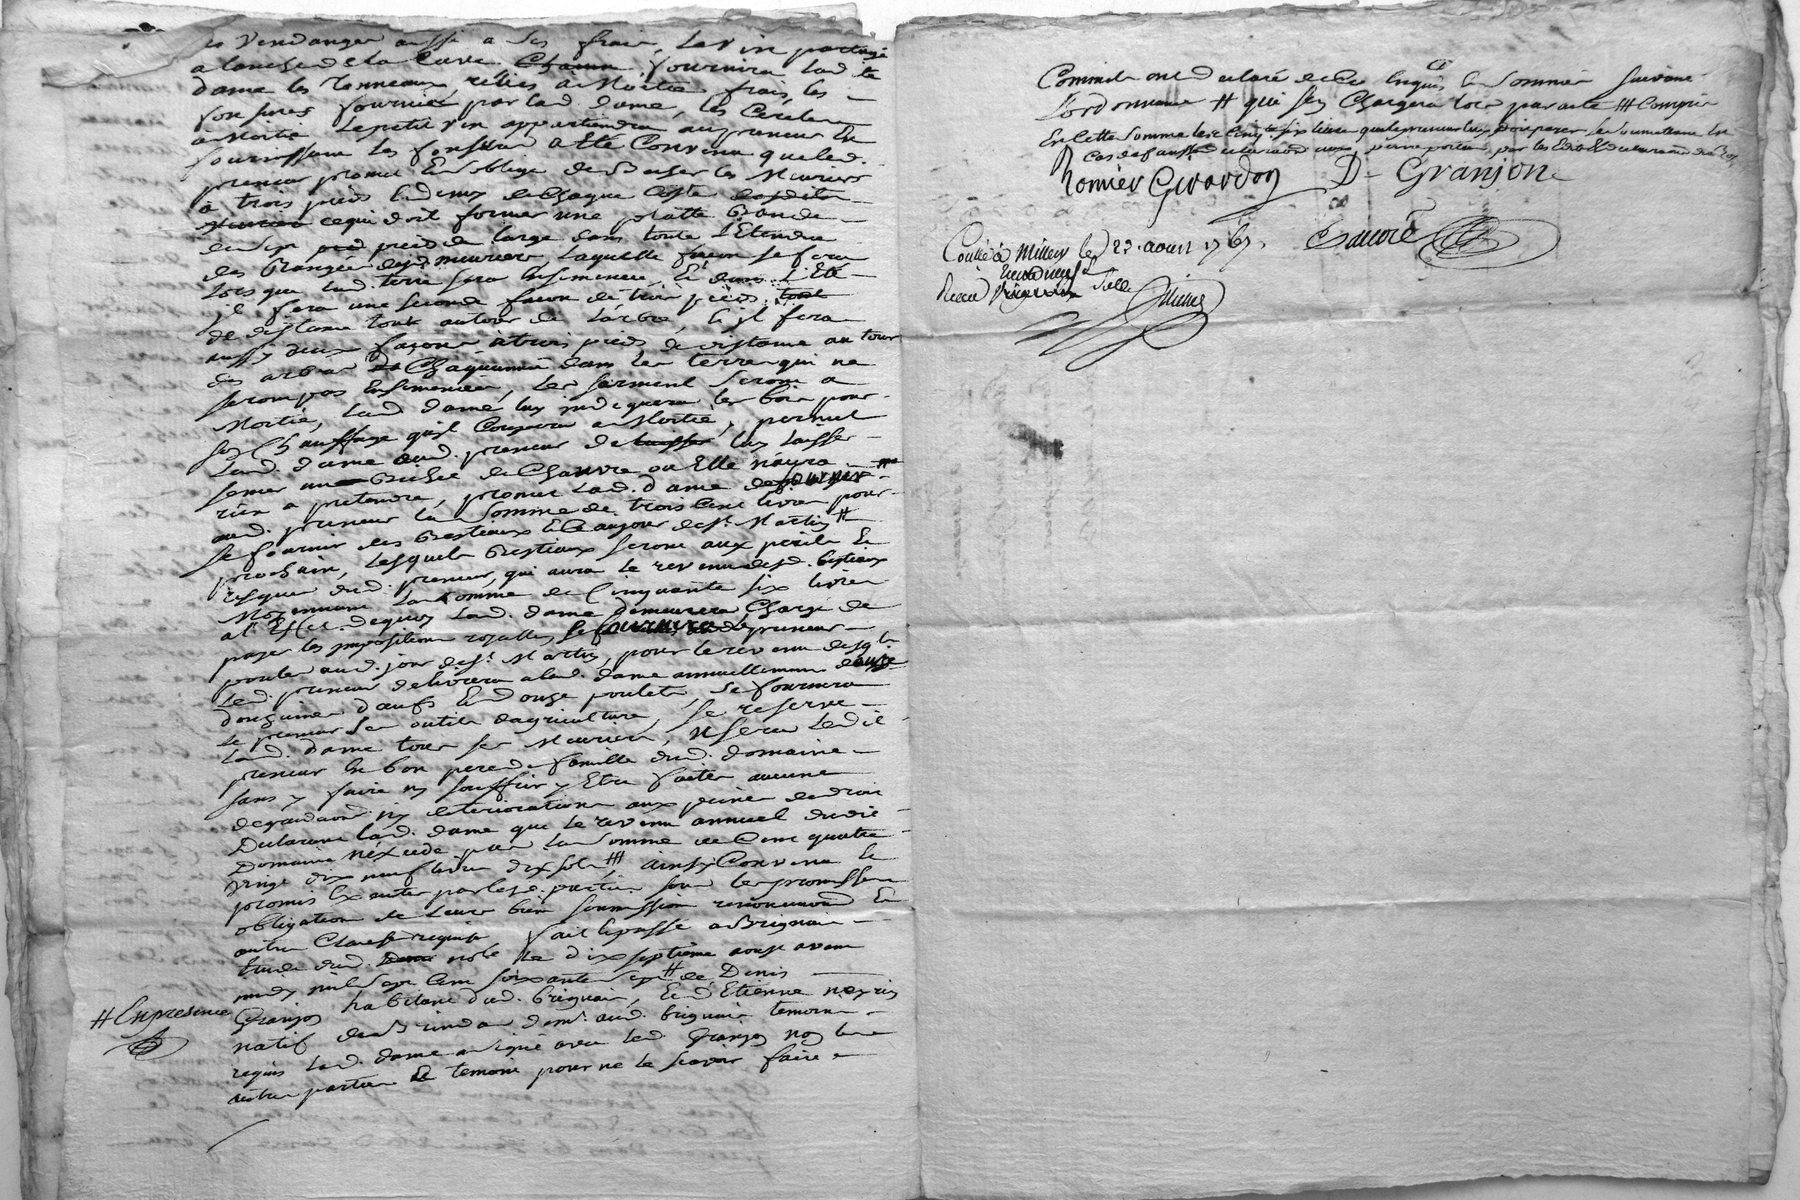 Vendanger aussi a ses frais, Le vin partagé
a lanche de la Cuve Chacun, fournira lad te
dame les Tonneaux, reliés a Moitié frais, les
fournies par lad. dame, les Cercles
a Moitié Le petit vin appartiendra au preneur En
fournissant les a été Convenu que led.
preneur promet Et s'oblige de les Muriers
a trois pieds Et demy de Chaque Costé desdits
Muriers ce qui doit former une platte Bande
de sept pied pieds de large dans toute L'Etendue
des Rangées desd. meuriers, Laquelle façon se fera
Lors que lad. terre sera Ensemencée, Et dans L'Eté
jl fera une seconde façon de trois pieds tout
de distance tout autour de L'arbre, Et jl fera
aussy deux façons a trois pieds de distance au tour
des arbres Et Chaque année dans les terres qui ne
seront pas Ensemencées, Les sarments seront a
Moitié, Lad. dame luy indiquera les bois pour
son Chauffage qu'il Coupera a Moitié, permet
Lad. dame aud. preneur de laisser luy laisser
semer une Bichée de Chanvre ou Elle n'aura
rien a pretendre, promet Lad. dame de fournir
aud. preneur la somme de trois Cent livres pour
se fournir des Bestiaux Et Ce au jour de St. Martin #
prochain, Lesquels Bestiaux seront aux perils Et
risques dud. preneur, qui aura le revenu desd. bestiaux
Moyennant La somme de Cinquante six livres
a l'Effet de quoy Lad. dame demeurera Chargé de
payer les jmpositions royalles, se fournira led. preneur
poules aud. jour de St. Martin, pour le revenu desq.les
Led. preneur delivrera a lad. dame annuellement douze
douzaines d'œufs Et douze poulets, se fournira
le preneur Ses outils d'agriculture, se reserve
Lad. dame tous ses Muriers, usera Ledit
preneur En bon pere de famille dud. domaine
sans y faire ny souffrir y Etre faites aucune
degradaon ny deteriorations aux peines de droit
Declarant lad. dame que le revenu annuel dudit
Domaine n'éxcede pas la somme de Cent quatre
vingt dix neuf livres dix sols ###, ainsy Convenu Et
promis Exécuter par lesd. parties sous les promesses
obligations de Leurs biens soumissions renonciaons Et
autres Clauses requises fait Et passé a Brignais
Etude dud. notre Le dix septieme aoust avant
midy mil sept Cent soixante sept # de Denis
Granjon habitant dud. Brignais, Et d'Etienne neyrin
natif de demt. aud. brignais temoins
requis Lad. dame a signé avec led. Granjon non les
autres parties Et temoin pour ne le scavoir faire
# En presence
Comme ils ont declaré de Ce Enquis Et Sommés Suivant
L'ordonnance # qui s'en Chargera lors par acte ### Compris
En Cette somme les Cinqte. six livres que le preneur luy doit payer
cas de fausse declaraon aux peines portées par les Edits Et declarations du Roy
Romier Girardon D- Granjon
Controllé a Millery le 23. aoust 1767.
Receu sols